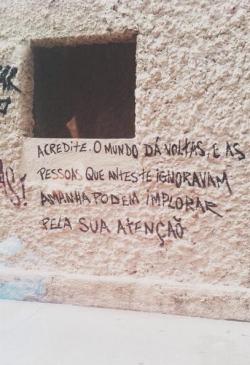 ACREDITE. O MUNDO DÁ VOLTAS, E AS
PESSOAS QUE ANTES TE IGNORAVAM
AMANHA PODEM IMPLORAR
PELA SUA ATENÇÃO